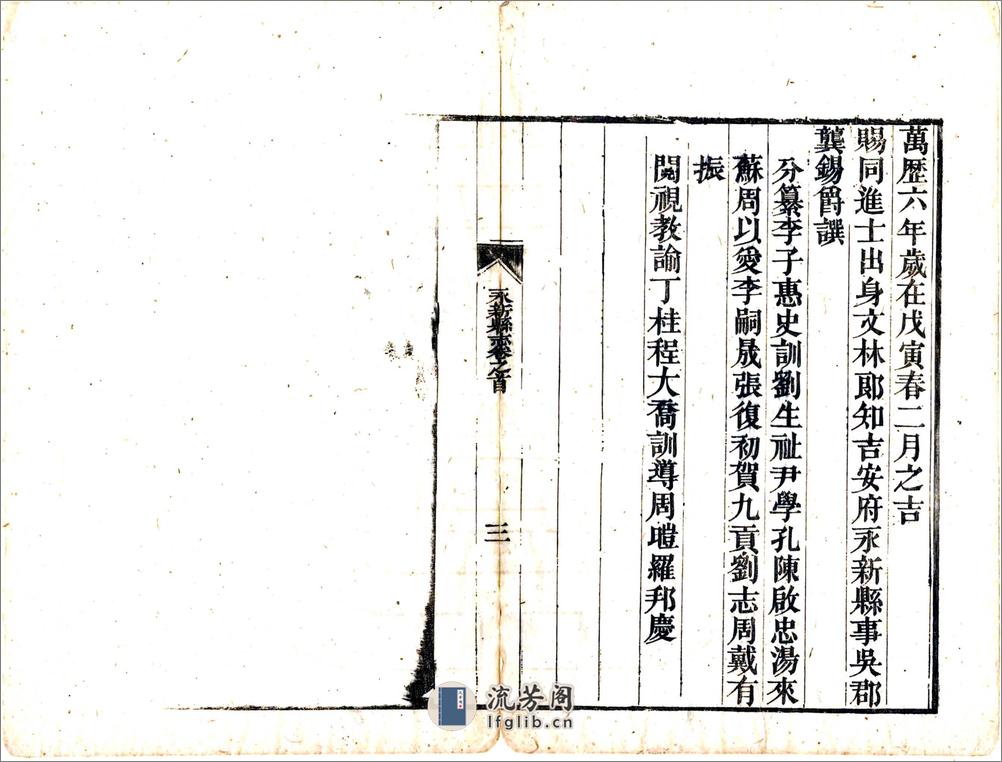 萬歴六年歲在戊寅春二月之吉
賜同進士出身文林郎知吉安府永新縣事吳郡
龔錫爵譔
分纂李子惠史訓劉生祉尹學孔陳啟忠湯來
蘇周以愛李嗣晟張復初賀九貢劉志周戴有
振
閱視教諭丁桂程大喬訓導周暟羅邦慶
永新縣志卷之首
三
流芳阁
lfglib.cn